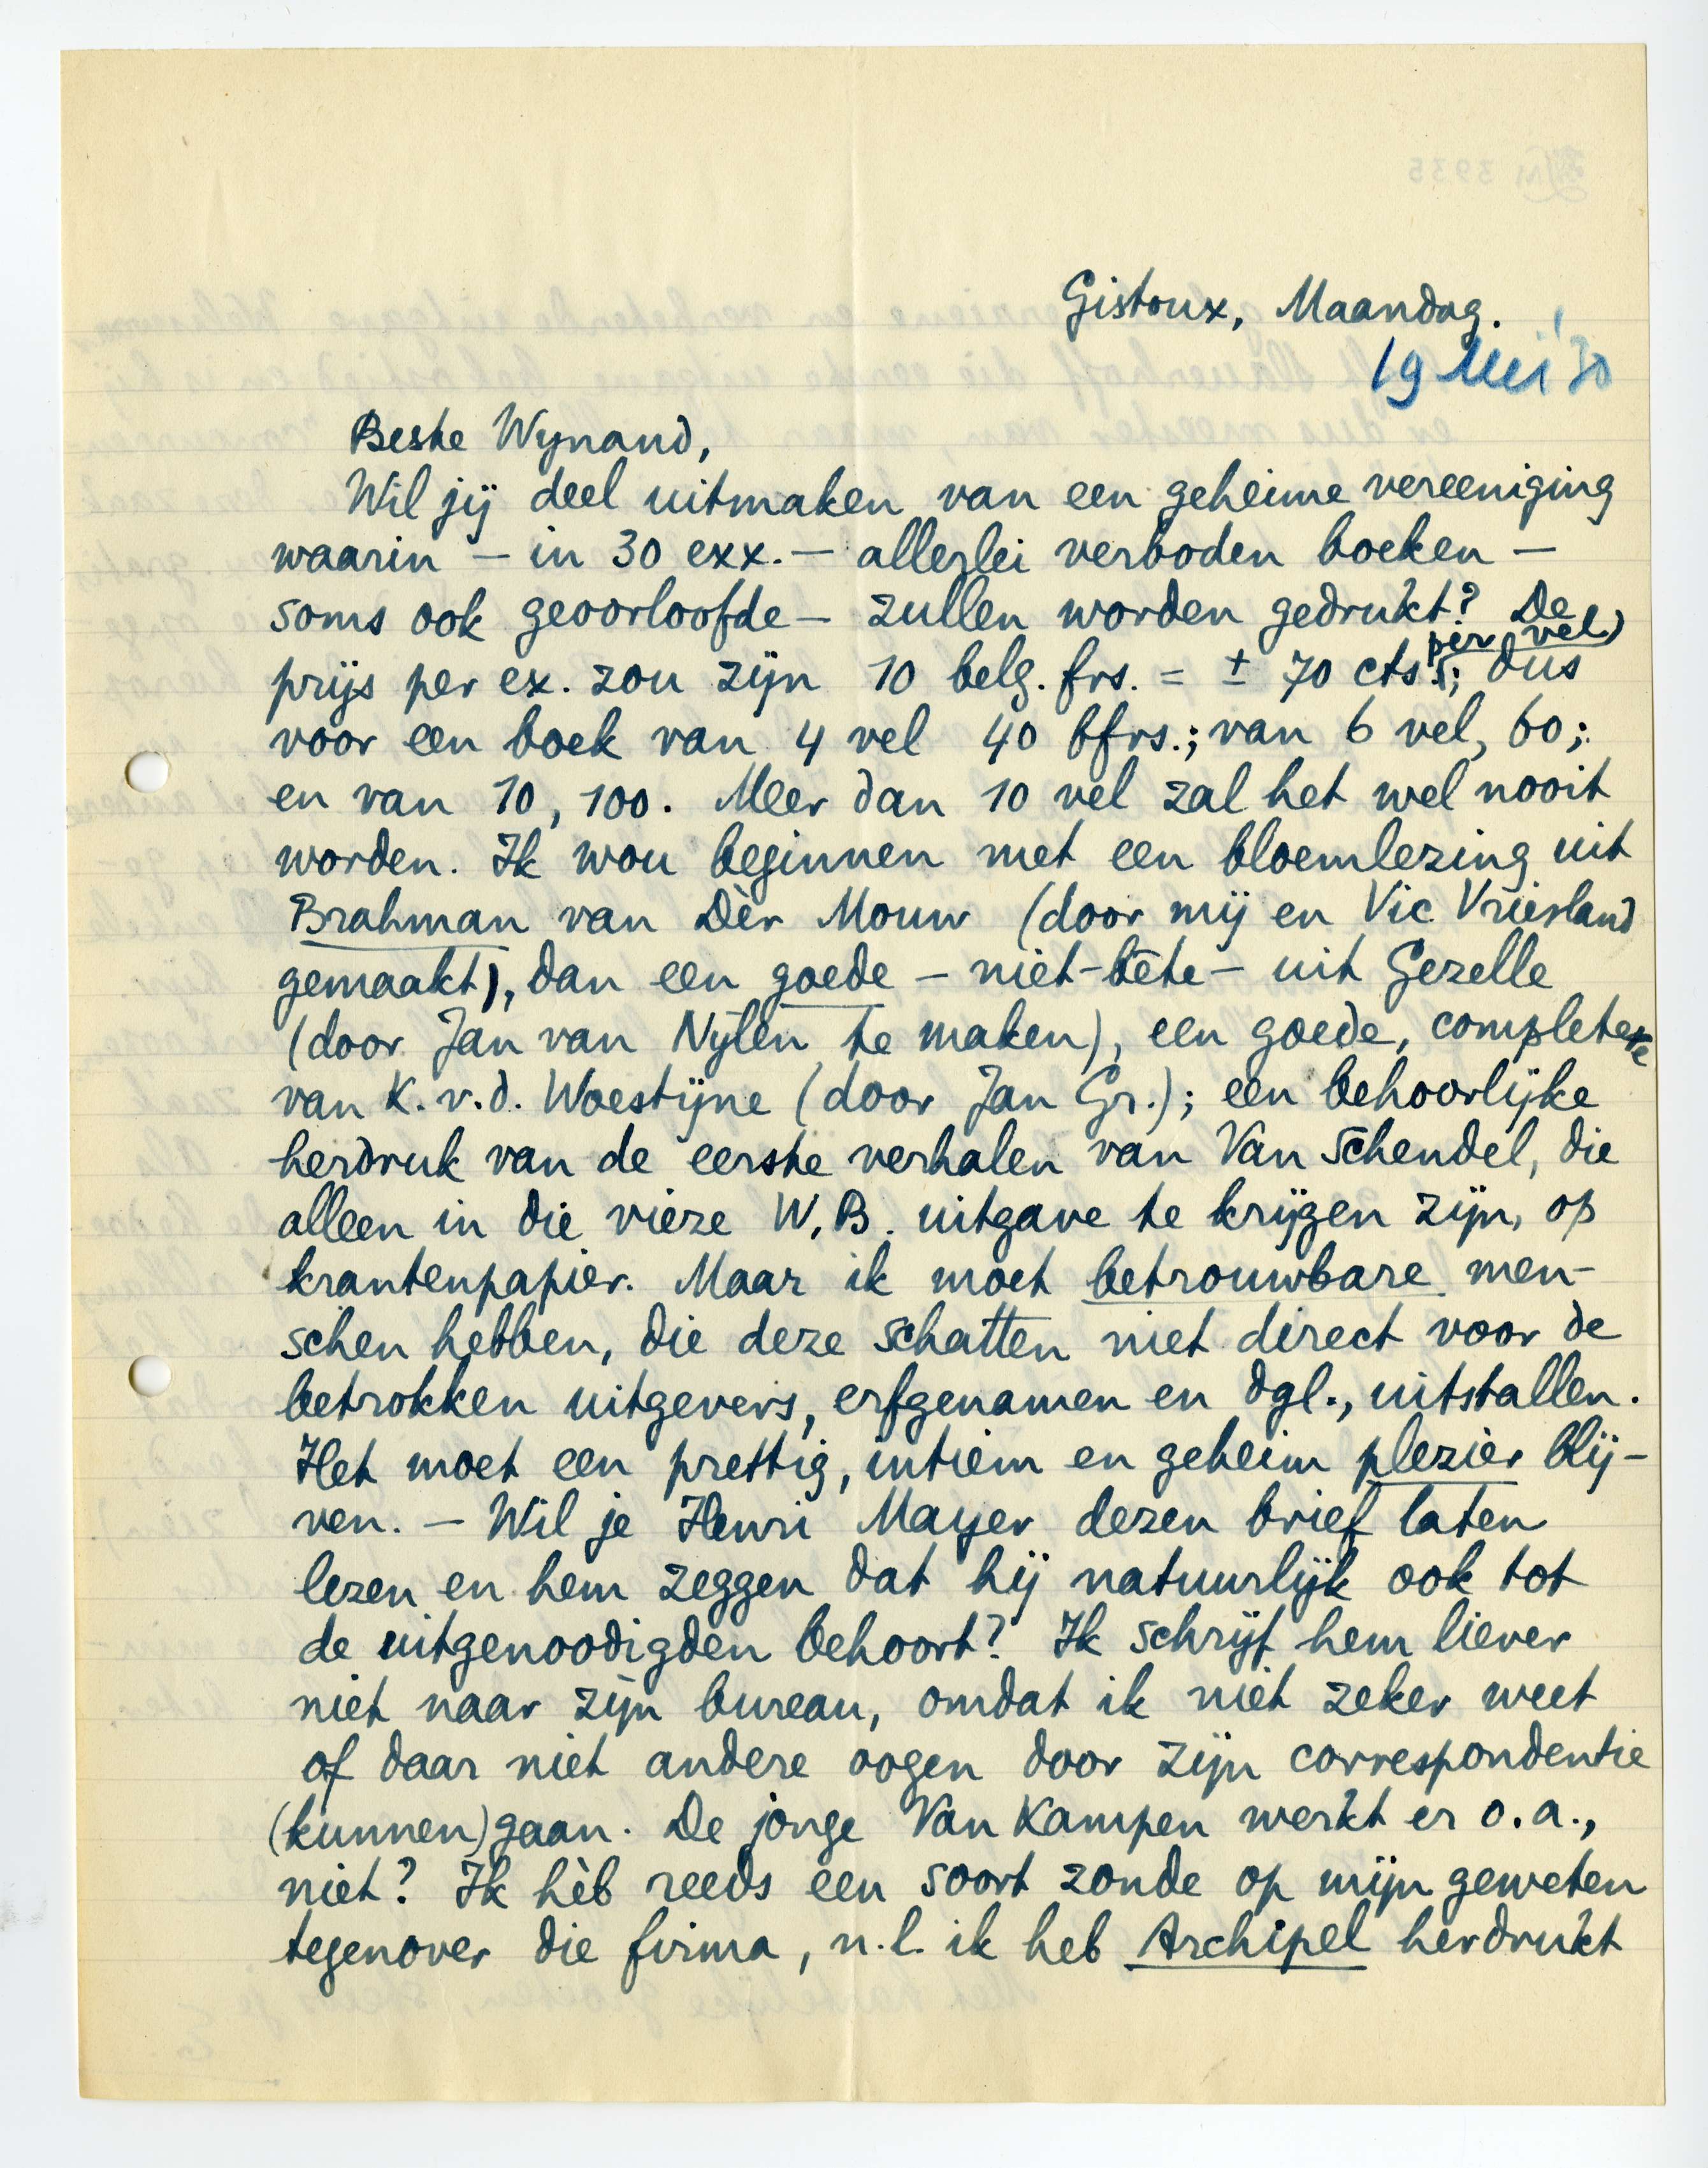 Gistoux, Maandag.
19 Mei '30
Beste Wynand,
Wil jij deel uitmaken van een geheime vereeniging
waarin — in 30 exx. — allerlei verboden boeken —
soms ook geoorloofde — zullen worden gedrukt? De
per vel)
prijs per ex. zou zijn 10 belg. frs. = ± 70 cts.; dus
voor een boek van 4 vel 40 bfrs.; van 6 vel, 60;
en van 10, 100. Meer dan 10 vel zal het wel nooit
worden. Ik wou beginnen met een bloemlezing uit
Brahman van Dèr Mouw (door mij en Vic. Vriesland
gemaakt), dan een goede — niet-bête — uit Gezelle
(door Jan van Nylen te maken), een goede, complete
van K. v. d. Woestijne (door Jan Gr.); een behoorlijke
herdruk van de eerste verhalen van Van Schendel, die
alleen in die vieze W.B. uitgave te krijgen zijn, op
krantenpapier. Maar ik moet betrouwbare men-
schen hebben, die deze schatten niet direct voor de
betrokken uitgevers, erfgenamen en dgl., uitstallen.
Het moet een prettig, intiem en geheim plezier blij-
ven. — Wil je Henri Mayer dezen brief laten
lezen en hem zeggen dat hij natuurlijk ook tot
de uitgenoodigden behoort? Ik schrijf hem liever
niet naar zijn bureau, omdat ik niet zeker weet
of daar niet andere oogen door zijn correspondentie
(kunnen) gaan. De jonge Van Kampen werkt er o.a.,
niet? Ik hèb reeds een soort zonde op mijn geweten
tegenover die firma, n.l. ik heb Archipel herdrukt